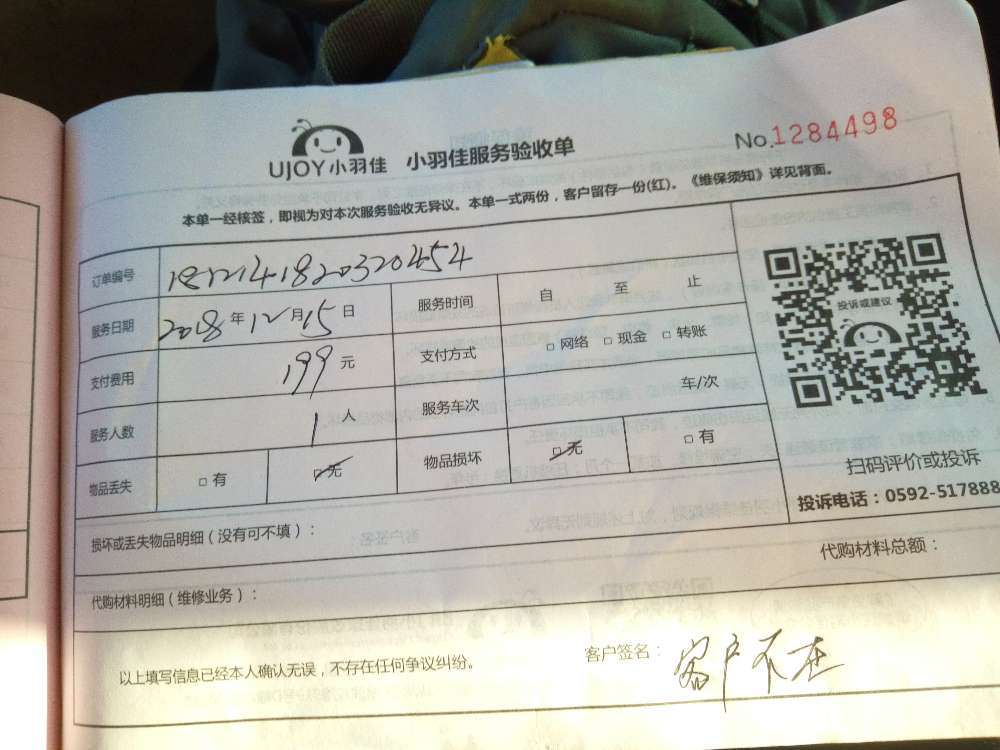 UJOY小羽佳 小羽佳服务验收单 No.1284498
本单一经核签，即视为对本次服务验收无异议。本单一式两份，客户留存一份(红)。《维保须知》详见背面。
订单编号 1812141820320454
服务日期 2018年12月15日 服务时间 自 至 止
支付费用 199元 支付方式 □网络 □现金 □转账
服务人数 1人 服务车次 车/次
物品丢失 □有 □无 物品损坏 □无 □有
投诉或建议
扫码评价或投诉
投诉电话：0592-517888
损坏或丢失物品明细（没有可不填）：
代购材料明细（维修业务）： 代购材料总额：
以上填写信息已经本人确认无误，不存在任何争议纠纷。 客户签名： 客户不在